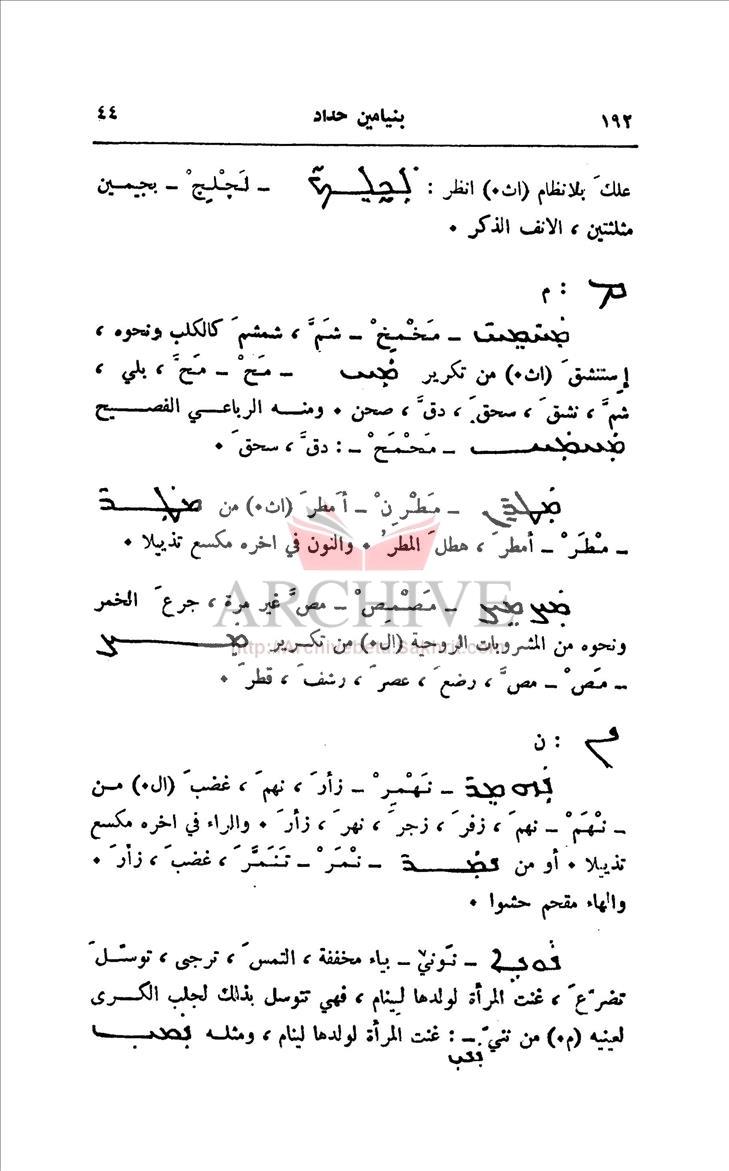 ١٩٢ بنيامين حداد ٤٤
علكَ بلانظام (اث٠) انظر : ـ لَجْلِجْ ـ بجيمين
مثلثتين ، الانف الذكر ٠
ܡ : م
ـ مَخْمِخْ ـ شمَّ ، شمشمَ كالكلب ونحوه ،
إستنشقَ (اث٠) من تكرير ـ مَخْ ـ مَخَّ ، بلي ،
شمَّ ، نشقَ ، سحقَ ، دقَّ ، صحن ٠ ومنه الرباعي الفصيح
ـ مَحْمَحْ ـ : دقَّ ، سحقَ ٠
ـ مَطْرِنْ ـ أمطرَ (اث٠) من
ـ مْطَرْ ـ أمطرَ ، هطلَ المطرُ ٠ والنون في اخره مكسع تذييلا ٠
ARCHIVE
ـ مَصْمِصْ ـ مصَّ غير مرة ، جرعَ الخمر
ونحوه من المشروبات الروحية (ال٠) من تكرير
http://Archivebeta.Sakhrit.com
ـ مَصْ ـ مصَّ ، رضعَ ، عصرَ ، رشفَ ، قطرَ ٠
ܢ : ن
ـ نَهْمِرْ ـ زأرَ ، نهمَ ، غضبَ (ال٠) من
ـ نْهَمْ ـ نهمَ ، زفرَ ، زجرَ ، نهرَ ، زأرَ ٠ والراء في اخره مكسع
تذييلا ٠ أو من ـ نْمَرْ ـ تَنَمَّرَ ، غضبَ ، زأرَ ٠
والهاء مقحم حشوا ٠
ـ نوني ـ بياء مخففة ، التمسَ ، ترجى ، توسّلَ
تضرّعَ ، غنت المرأة لولدها لينام ، فهي تتوسل بذلك لجلب الكرى
لعينيه (م٠) من ننيّ ـ : غنت المرأة لولدها لينام ، ومثله